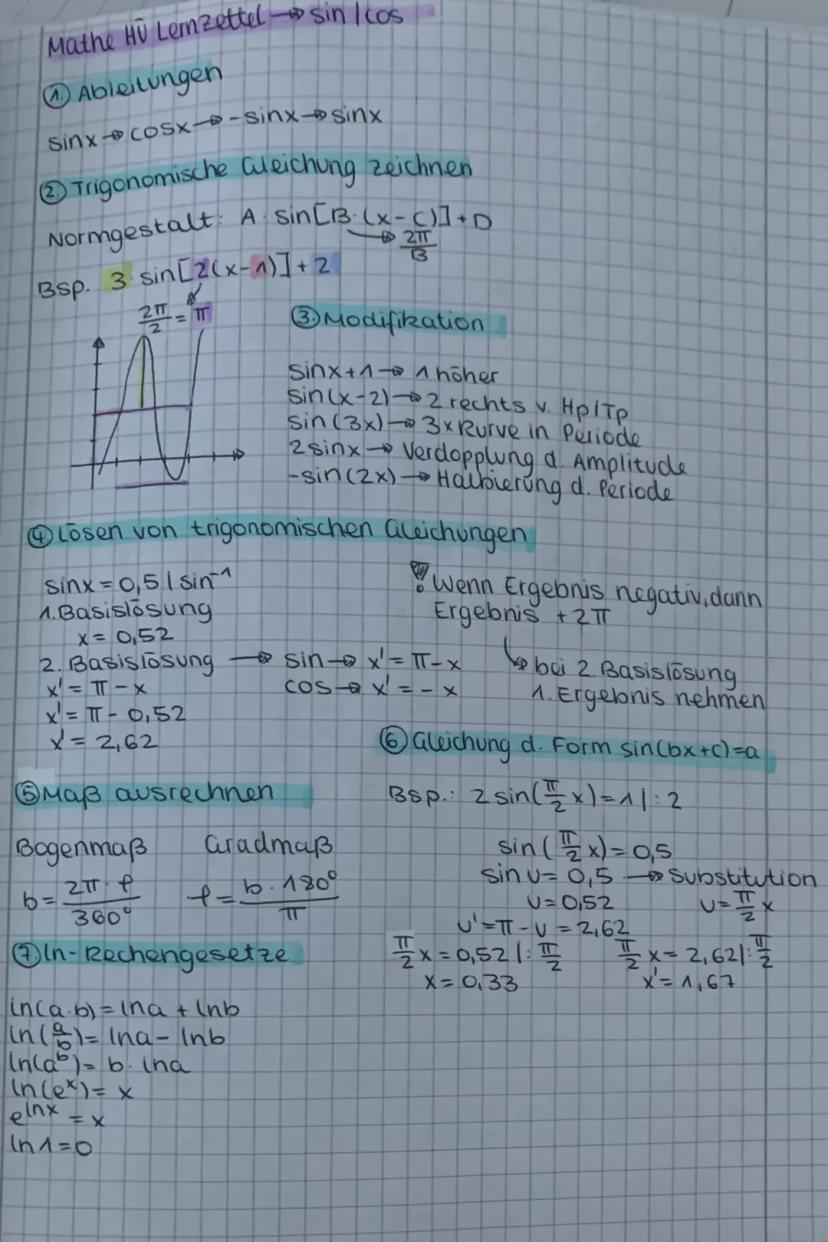 Mathe HÜ Lernzettel → sin/cos
① Ableitungen
sinx → cosx → -sinx → sinx
② Trigonomische Gleichung zeichnen
Normgestalt: A · sin[B·(x-C)]+D
→ 2π/B
Bsp. 3·sin[2(x-1)]+2
2π/2 = π
③ Modifikation
sinx+1 → 1 höher
sin(x-2) → 2 rechts v. Hp/Tp
sin(3x) → 3x Kurve in Periode
2sinx → Verdopplung d. Amplitude
-sin(2x) → Halbierung d. Periode
④ Lösen von trigonomischen Gleichungen
sinx = 0,5 | sin⁻¹
1. Basislösung
x = 0,52
2. Basislösung → sin → x' = π-x
cos → x' = -x
x' = π - x
x' = π - 0,52
x' = 2,62
! Wenn Ergebnis negativ, dann
Ergebnis + 2π
↳ bei 2. Basislösung
1. Ergebnis nehmen
⑤ Maß ausrechnen
Bogenmaß Gradmaß
b = 2π · φ / 360° φ = b · 180° / π
⑥ Gleichung d. Form sin(bx+c)=a
Bsp.: 2 sin(π/2 x) = 1 | : 2
sin(π/2 x) = 0,5
sin u = 0,5 → Substitution
u = 0,52 u = π/2 x
u' = π - u = 2,62
π/2 x = 0,52 | : π/2 π/2 x = 2,62 | : π/2
x = 0,33 x' = 1,67
⑦ ln-Rechengesetze
ln(a·b) = lna + lnb
ln(a/b) = lna - lnb
ln(aᵇ) = b · lna
ln(eˣ) = x
e^lnx = x
ln1 = 0